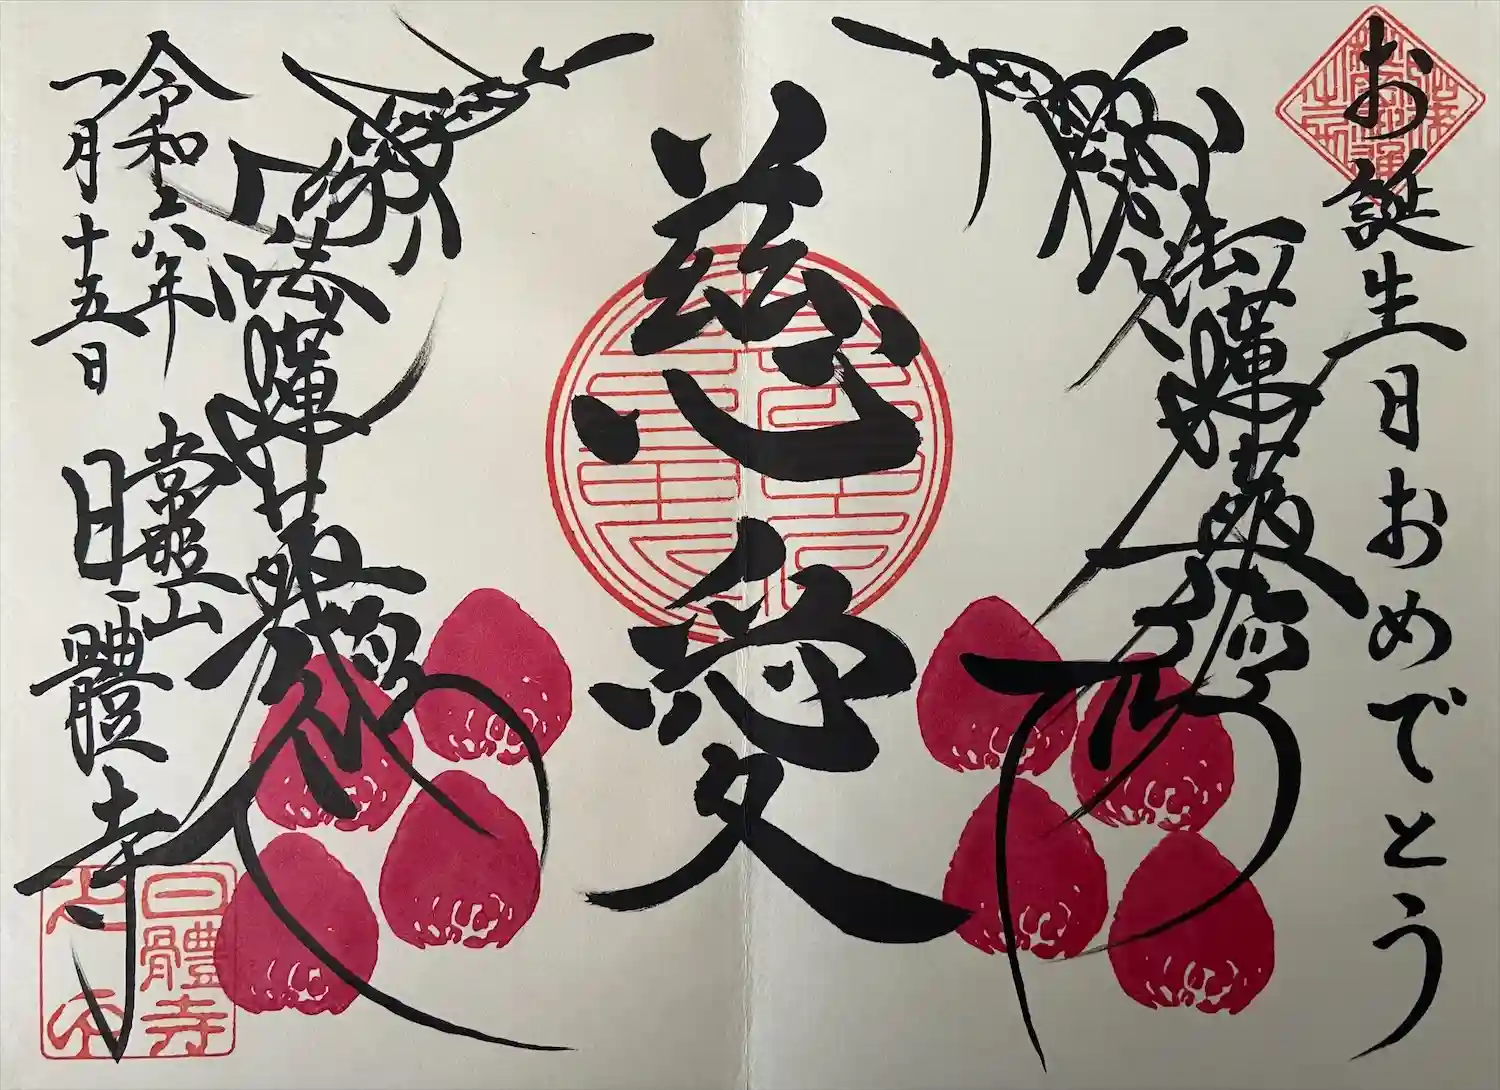 お誕生日おめでとう
南無妙法蓮華経
慈愛
南無妙法蓮華経
令和六年
一月十五日
常照山
日體寺
日體寺